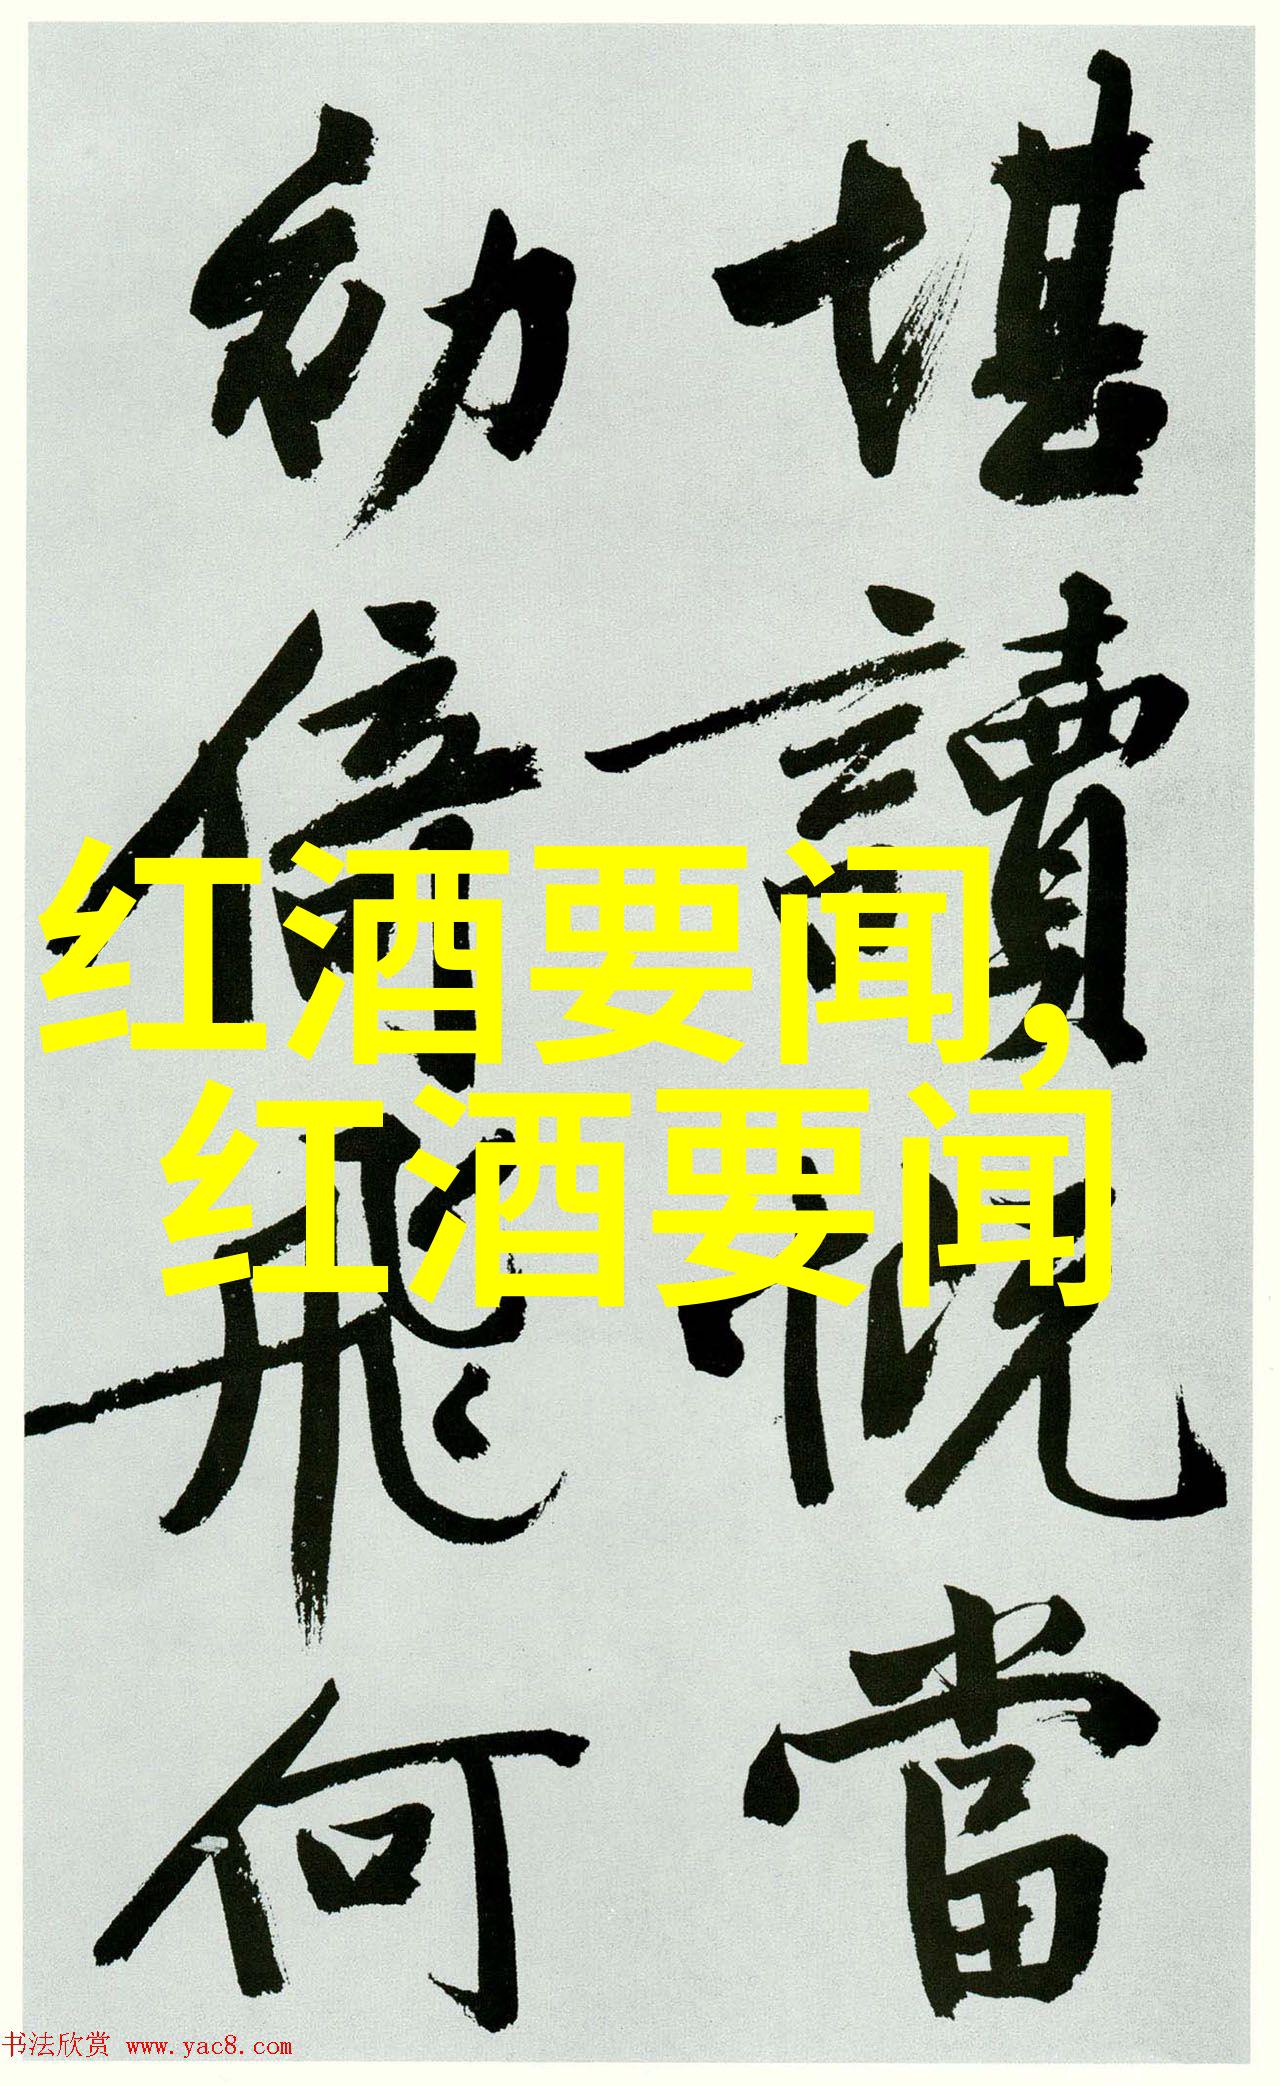 堪讀況當
幼倍飛何
红酒要闻,
红酒要闻
书法欣赏 www.yac8.com